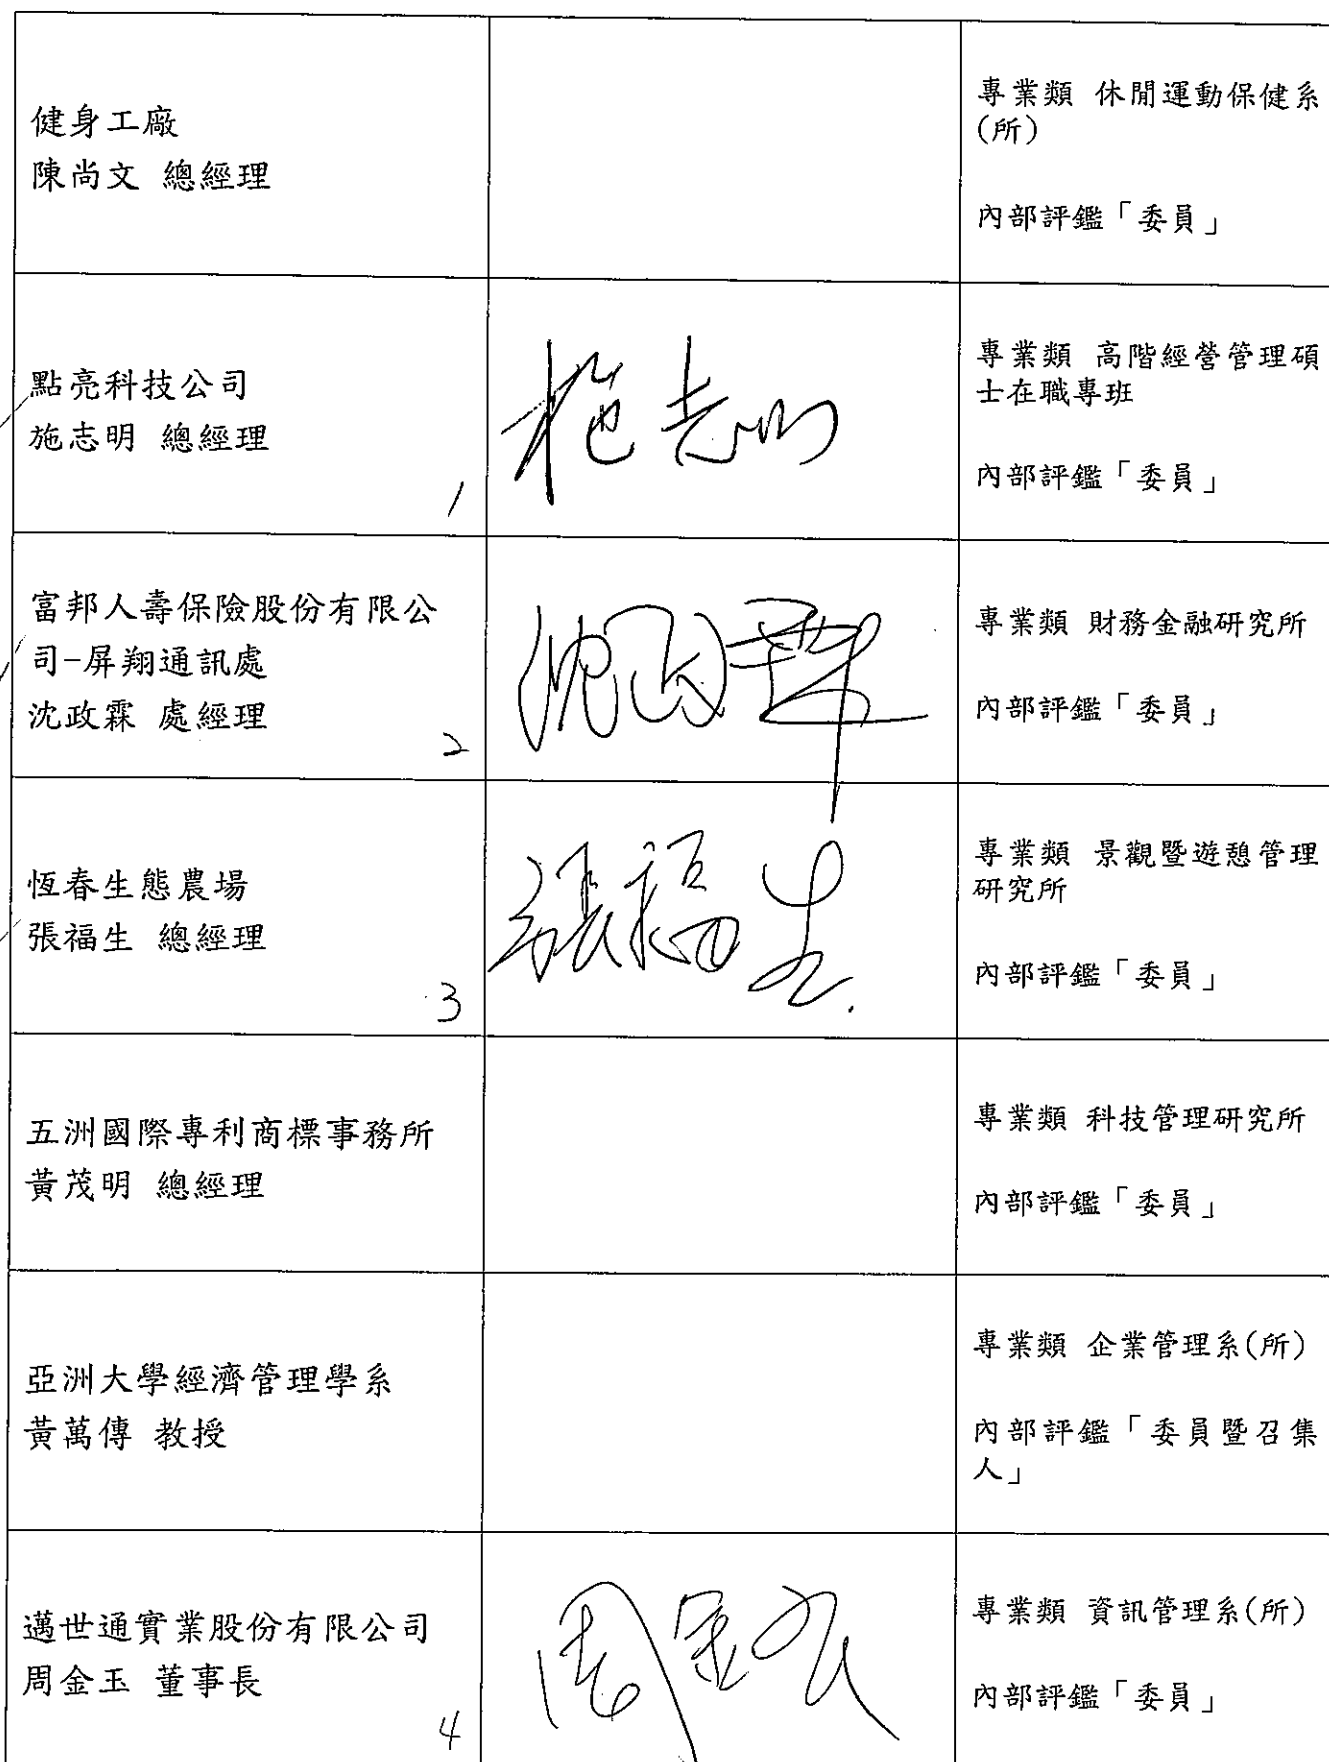 健身工廠
陳尚文 總經理
專業類 休閒運動保健系
(所)
內部評鑑「委員」
點亮科技公司
施志明 總經理
1
施志明
專業類 高階經營管理碩
士在職專班
內部評鑑「委員」
富邦人壽保險股份有限公
司-屏翔通訊處
沈政霖 處經理
2
沈政霖
專業類 財務金融研究所
內部評鑑「委員」
恆春生態農場
張福生 總經理
3
張福生
專業類 景觀暨遊憩管理
研究所
內部評鑑「委員」
五洲國際專利商標事務所
黃茂明 總經理
專業類 科技管理研究所
內部評鑑「委員」
亞洲大學經濟管理學系
黃萬傳 教授
專業類 企業管理系(所)
內部評鑑「委員暨召集
人」
邁世通實業股份有限公司
周金玉 董事長
4
周金玉
專業類 資訊管理系(所)
內部評鑑「委員」